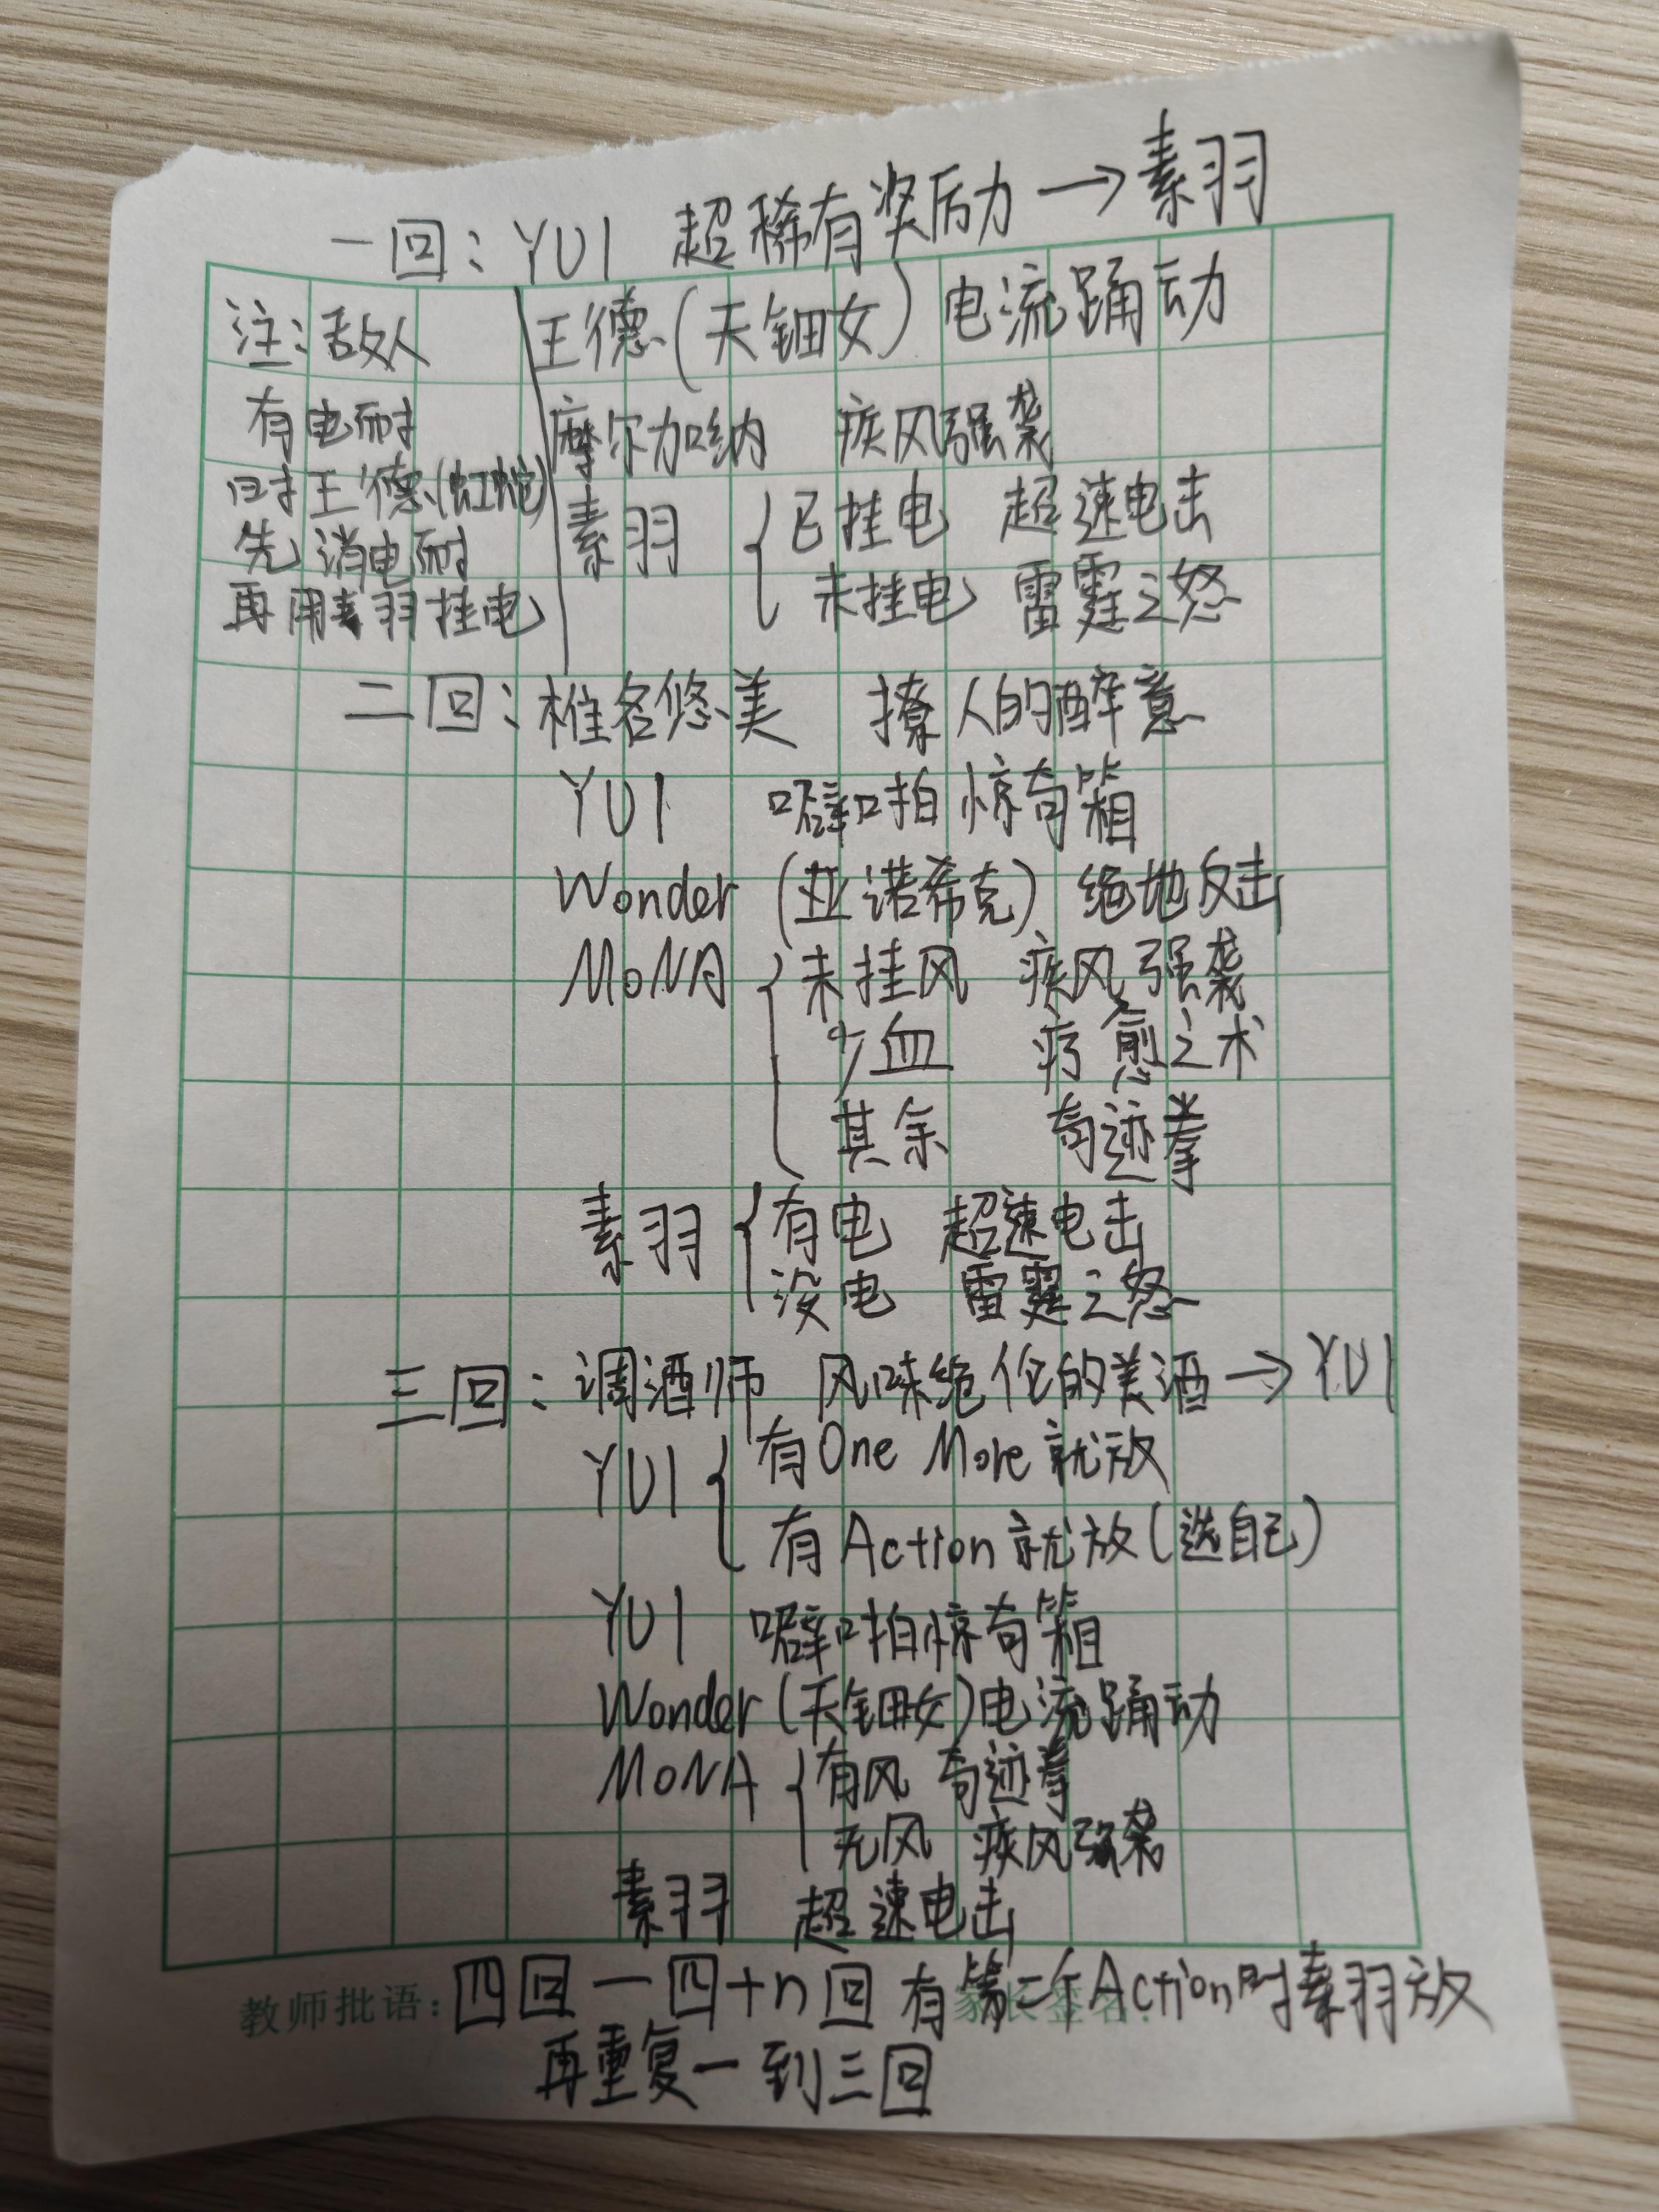 一回：YUI 超稀有奖励→素羽
王德(天钿女) 电流踊动
摩尔加纳 疾风强袭
素羽 已挂电 超速电击
未挂电 雷霆之怒
注：敌人
有电耐
时王德(虹蛇)
先消电耐
再用素羽挂电
二回：椎名悠美 撩人的醉意
YUI 噼啪惊奇箱
Wonder (亚诺希克) 绝地反击
MoNA 未挂风 疾风强袭
少血 疗愈之术
其余 奇迹拳
素羽 有电 超速电击
没电 雷霆之怒
三回：调酒师 风味绝伦的美酒→YUI
YUI 有One More就放
有Action就放(选自己)
YUI 噼啪惊奇箱
Wonder(天钿女)电流踊动
MoNA 有风 奇迹拳
无风 疾风强袭
素羽 超速电击
教师批语：四回一四+n回 有第二个Action时素羽放
再重复一到三回